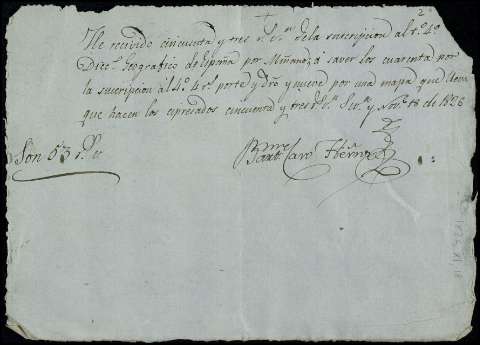 He recivido cincuenta y tres r.s v.n de la suscripcion al t.o 4.o
Dicc.o Geografico de España por Miñano, á saver los cuarenta por
la suscripcion al 4.o 4 r.s porte y dro y nueve por una mapa que lleva
que hacen los expresados cincuenta y tres r.s v.n Nov.e 18 de 1826
Son 53 r.s v